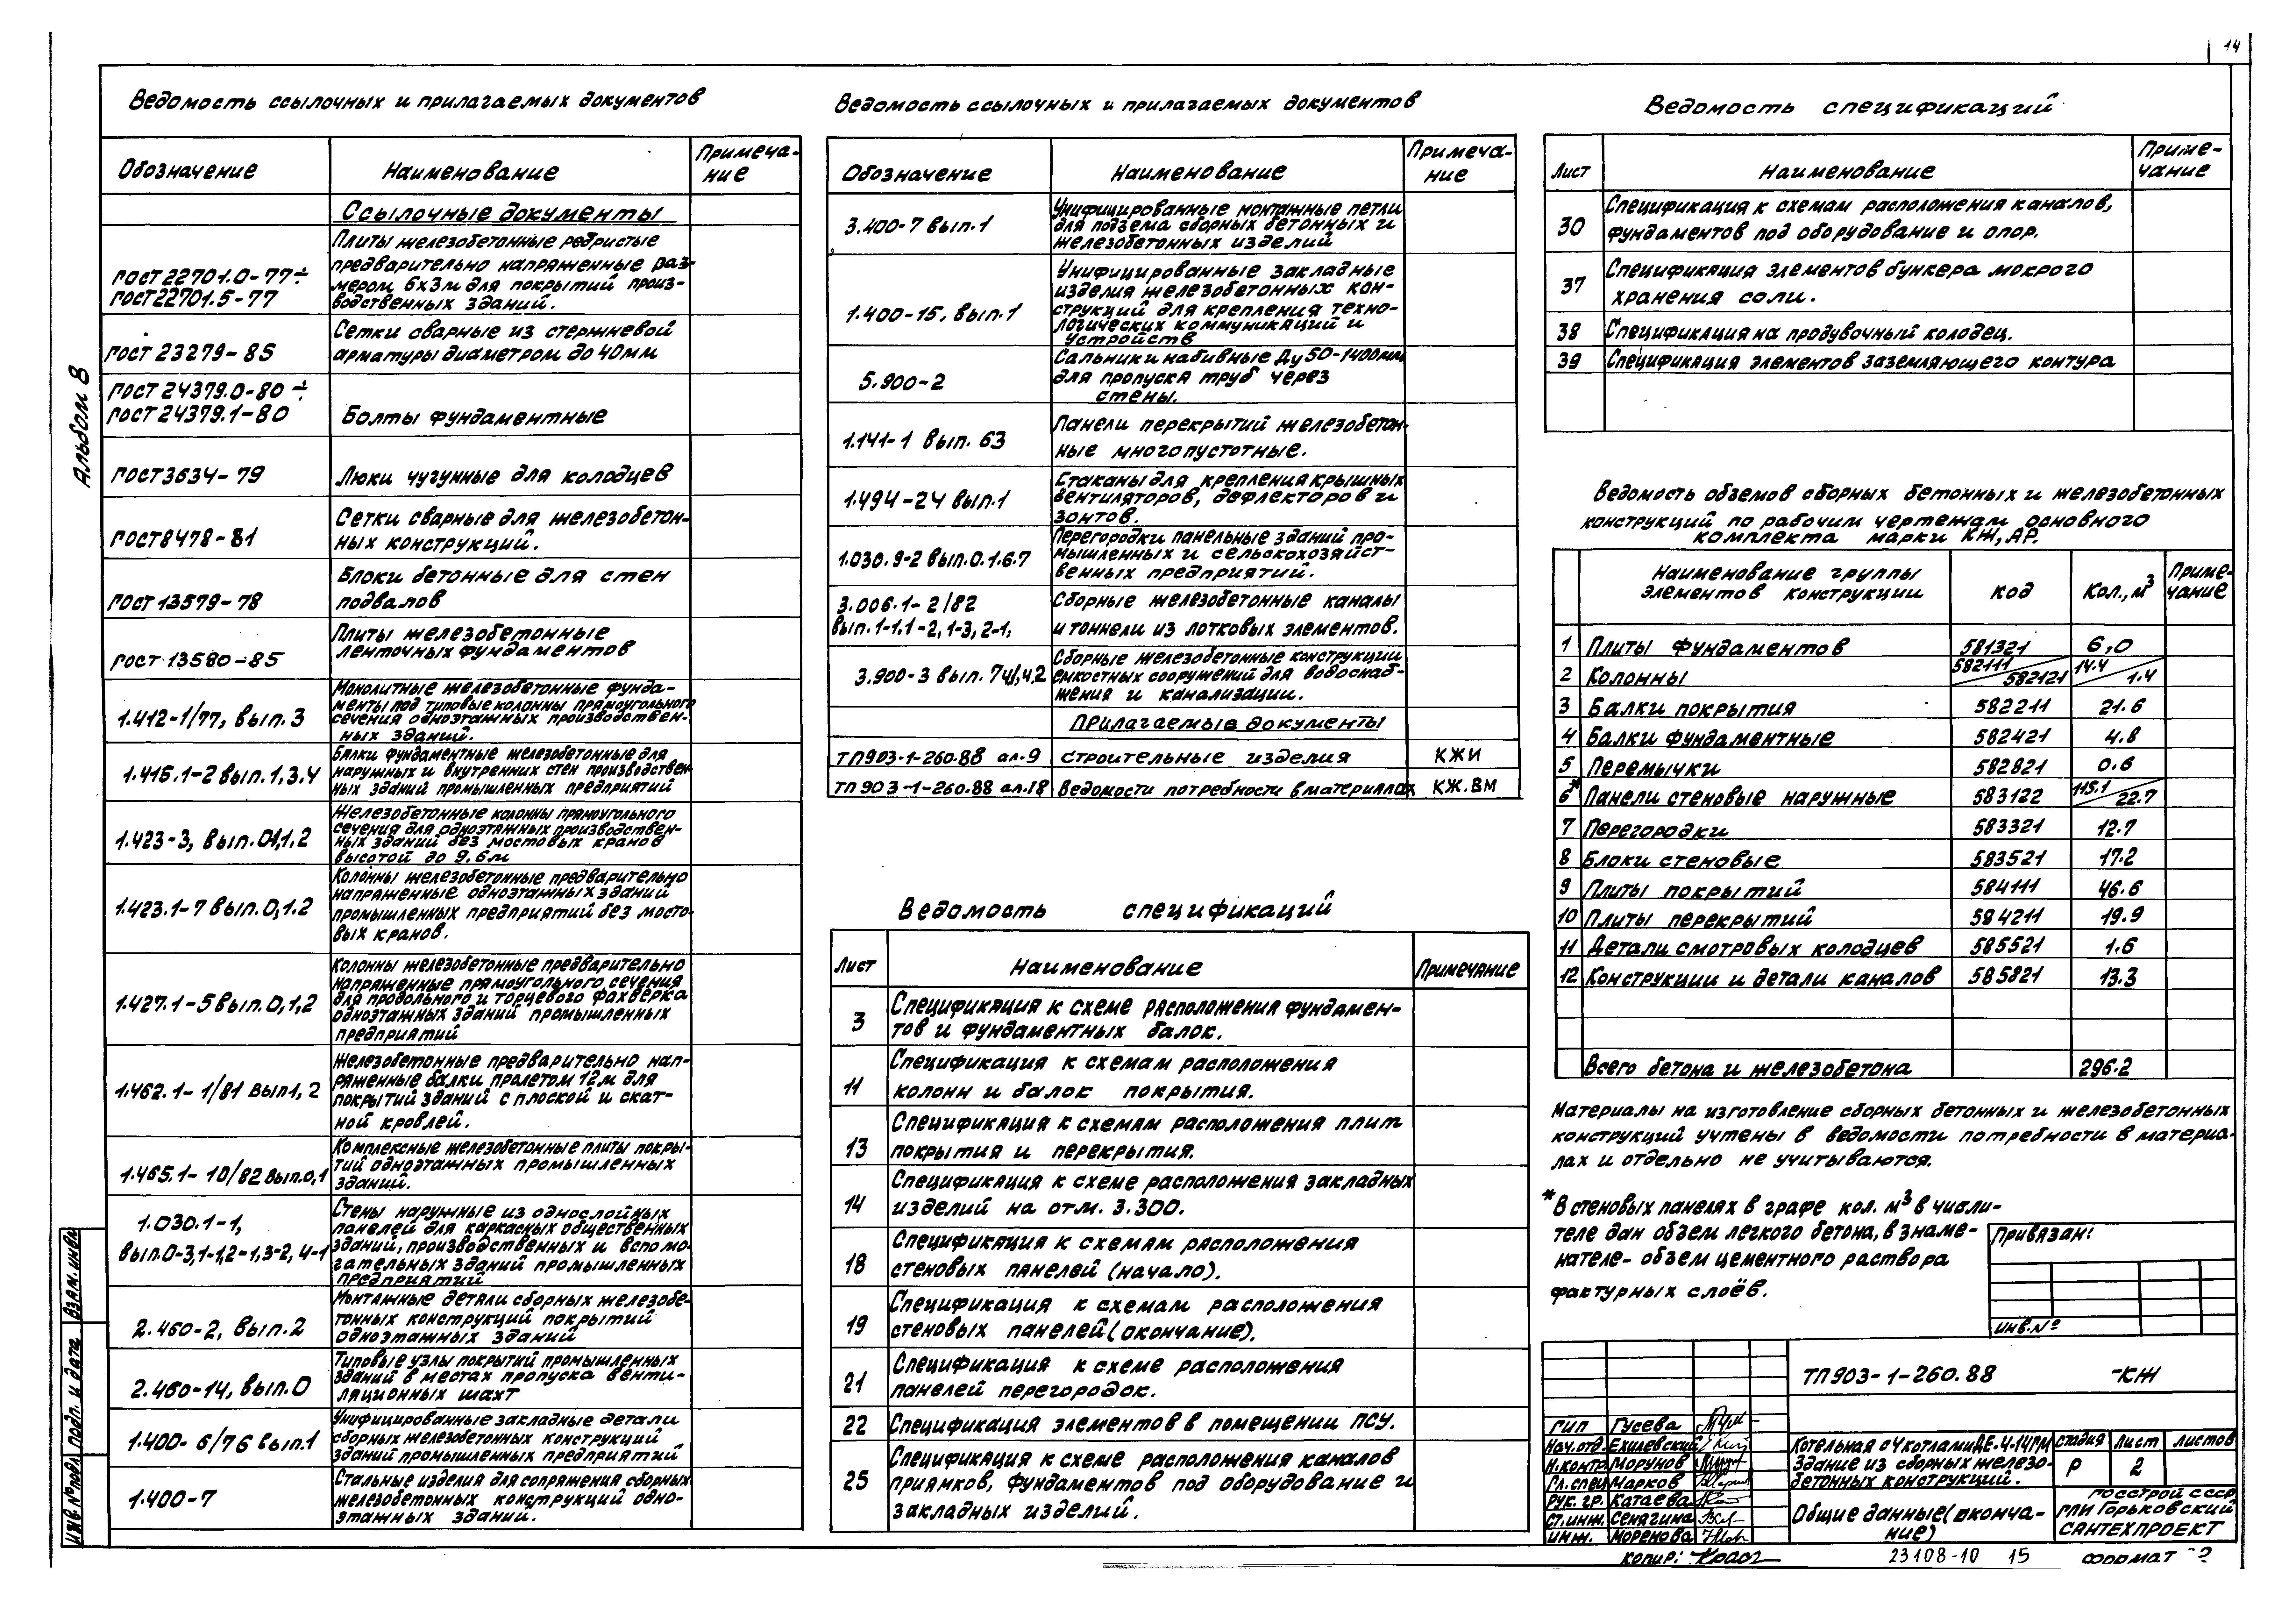 14
Альбом 8
Ведомость ссылочных и прилагаемых документов
Обозначение | Наименование | Примеча-
ние
Ссылочные документы
ГОСТ 22701.0-77÷
ГОСТ 22701.5-77
Плиты железобетонные ребристые
предварительно напряженные раз-
мером 6х3м для покрытий произ-
водственных зданий.
ГОСТ 23279-85
Сетки сварные из стержневой
арматуры диаметром до 40мм
ГОСТ 24379.0-80÷
ГОСТ 24379.1-80
Болты фундаментные
ГОСТ 3634-79
Люки чугунные для колодцев
ГОСТ 8478-81
Сетки сварные для железобетон-
ных конструкций.
ГОСТ 13579-78
Блоки бетонные для стен
подвалов
ГОСТ 13580-85
Плиты железобетонные
ленточных фундаментов
1.412-1/77, вып.3
Монолитные железобетонные фунда-
менты под типовые колонны прямоугольного
сечения одноэтажных производствен-
ных зданий.
1.415.1-2 вып.1,3,4
Балки фундаментные железобетонные для
наружных и внутренних стен производствен-
ных зданий промышленных предприятий
1.423-3, вып.0,1,1,2
Железобетонные колонны прямоугольного
сечения для одноэтажных производствен-
ных зданий без мостовых кранов
высотой до 9.6м
1.423.1-7 вып.0,1.2
Колонны железобетонные предварительно
напряженные одноэтажных зданий
промышленных предприятий без мосто-
вых кранов.
1.427.1-5 вып.0,1,2
Колонны железобетонные предварительно
напряженные прямоугольного сечения
для продольного и торцевого фахверка
одноэтажных зданий промышленных
предприятий
1.462.1-1/81 вып1,2
Железобетонные предварительно нап-
ряженные балки пролетом 12м для
покрытий зданий с плоской и скат-
ной кровлей.
1.465.1-10/82 вып.0,1
Комплексные железобетонные плиты покры-
тий одноэтажных промышленных
зданий.
1.030.1-1,
вып.0-3,1-1,2-1,3-2,4-1
Стены наружные из однослойных
панелей для каркасных общественных
зданий, производственных и вспомо-
гательных зданий промышленных
предприятий
2.460-2, вып.2
Монтажные детали сборных железобе-
тонных конструкций покрытий
одноэтажных зданий
2.460-14, вып.0
Типовые узлы покрытий промышленных
зданий в местах пропуска венти-
ляционных шахт
1.400-6/76 вып.1
Унифицированные закладные детали
сборных железобетонных конструкций
зданий промышленных предприятий
1.400-7
Стальные изделия для сопряжения сборных
железобетонных конструкций одно-
этажных зданий.
Ведомость ссылочных и прилагаемых документов
Обозначение | Наименование | Примеча-
ние
3.400-7 вып.1
Унифицированные монтажные петли
для подъема сборных бетонных и
железобетонных изделий
1.400-15, вып.1
Унифицированные закладные
изделия железобетонных кон-
струкций для крепления техно-
логических коммуникаций и
устройств
5.900-2
Сальники набивные Ду 50-1400мм
для пропуска труб через
стены.
1.141-1 вып. 63
Панели перекрытий железобетон-
ные многопустотные.
1.494-24 вып.1
Стаканы для крепления крышных
вентиляторов, дефлекторов и
зонтов.
1.030.9-2 вып.0.1.6.7
Перегородки панельные зданий про-
мышленных и сельскохозяйст-
венных предприятий.
3.006.1-2/82
вып.1-1,1-2,1-3,2-1,
Сборные железобетонные каналы
и тоннели из лотковых элементов.
3.900-3 вып.
Сборные железобетонные конструкции
емкостных сооружений для водоснаб-
жения и канализации.
Прилагаемые документы
ТП903-1-260.88 ал.9 | Строительные изделия | КЖИ
ТП903-1-260.88 ал.18 | Ведомости потребности в материалах | КЖ.ВМ
Ведомость спецификаций
Лист | Наименование | Примечание
3
Спецификация к схеме расположения фундамен-
тов и фундаментных балок.
11
Спецификация к схемам расположения
колонн и балок покрытия.
13
Спецификация к схемам расположения плит
покрытия и перекрытия.
14
Спецификация к схеме расположения закладных
изделий на отм. 3.300.
18
Спецификация к схемам расположения
стеновых панелей (начало).
19
Спецификация к схемам расположения
стеновых панелей (окончание).
21
Спецификация к схеме расположения
панелей перегородок.
22 | Спецификация элементов в помещении ПСУ.
25
Спецификация к схеме расположения каналов
приямков, фундаментов под оборудование и
закладных изделий.
Ведомость спецификаций
Лист | Наименование | Приме-
чание
30
Спецификация к схемам расположения каналов,
фундаментов под оборудование и опор.
37
Спецификация элементов бункера мокрого
хранения соли.
38 | Спецификация на продувочный колодец.
39 | Спецификация элементов заземляющего контура
Ведомость объемов сборных бетонных и железобетонных
конструкций по рабочим чертежам основного
комплекта марки КЖ, АР.
Наименование группы
элементов конструкции | код | Кол., м³ | Приме-
чание
1 | Плиты фундаментов | 581321 | 6,0
2 | Колонны | 582111/582121 | 14.4/1.4
3 | Балки покрытия | 582211 | 21.6
4 | Балки фундаментные | 582421 | 4.8
5 | Перемычки | 582821 | 0.6
6* | Панели стеновые наружные | 583122 | 115.1/22.7
7 | Перегородки | 583321 | 12.7
8 | Блоки стеновые | 583521 | 17.2
9 | Плиты покрытий | 584111 | 46.6
10 | Плиты перекрытий | 584211 | 19.9
11 | Детали смотровых колодцев | 585521 | 1.6
12 | Конструкции и детали каналов | 585821 | 13.3
Всего бетона и железобетона | 296.2
Материалы на изготовление сборных бетонных и железобетонных
конструкций учтены в ведомости потребности в материа-
лах и отдельно не учитываются.
* В стеновых панелях в графе кол. м³ в числи-
теле дан объем легкого бетона, в знаме-
нателе- объем цементного раствора
фактурных слоёв.
Привязан:
инв.№
ТП903-1-260.88 -КЖ
ГИП Гусева
Нач.отд. Ехилевский
Н.контр. Морунов
Гл.спец Марков
Рук. гр. Катаева
Ст.инж. Сенягина
инж. Моренова
Котельная с 4 котлами ДЕ-4-14ГМ
Здание из сборных железо-
бетонных конструкций.
стадия | лист | листов
Р | 2
Общие данные (оконча-
ние)
Госстрой СССР
ГПИ Горьковский
САНТЕХПРОЕКТ
Копир:
23108-10 15 Формат
Взам. инв.№
Подп. и дата
Инв. № подл